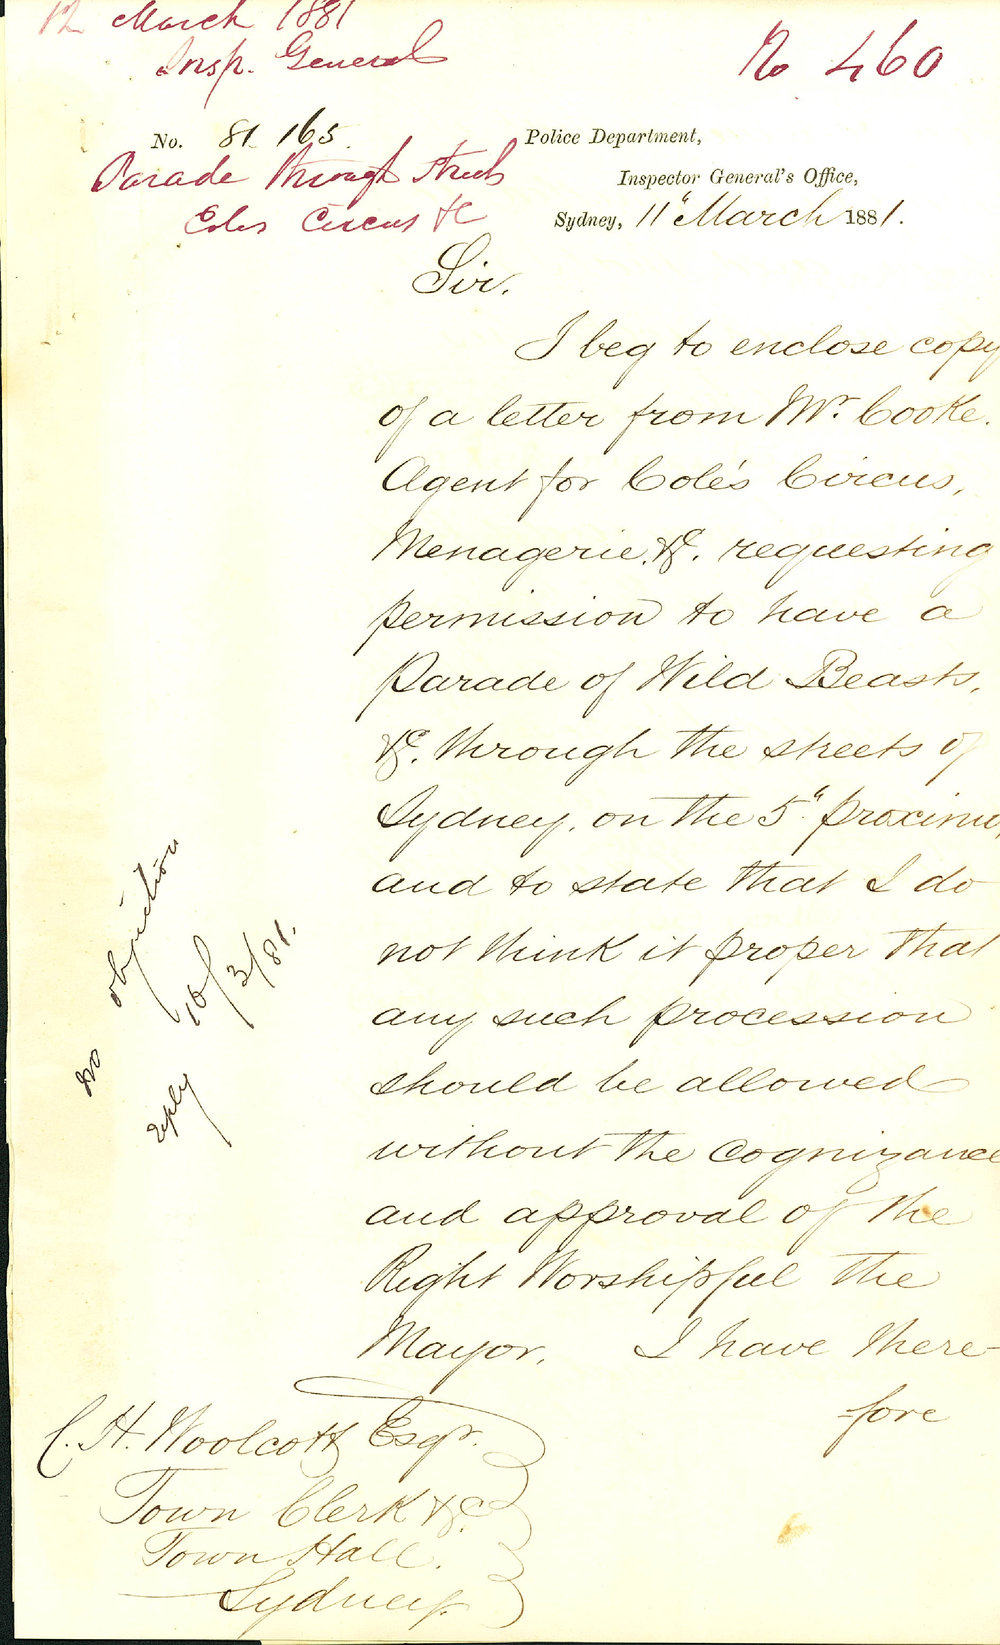 12 March 1881
Insp. General
No 460
No. 81 165
Parade through Streets
Coles Circus &c
Police Department,
Inspector General's Office,
Sydney, 11" March 1881.
Sir.
I beg to enclose copy
of a letter from Mr. Cooke.
Agent for Cole's Circus,
Menagerie. &c. requesting
permission to have a
Parade of Wild Beasts,
&c. through the streets of
Sydney, on the 5" proximo,
and to state that I do
not think it proper that
any such procession
should be allowed
without the cognizance
and approval of the
Right Worshipful the
Mayor. I have there-
-fore
no objection
reply 16/3/81.
C. H. Woolcott Esqr.
Town Clerk &c.
Town Hall.
Sydney.